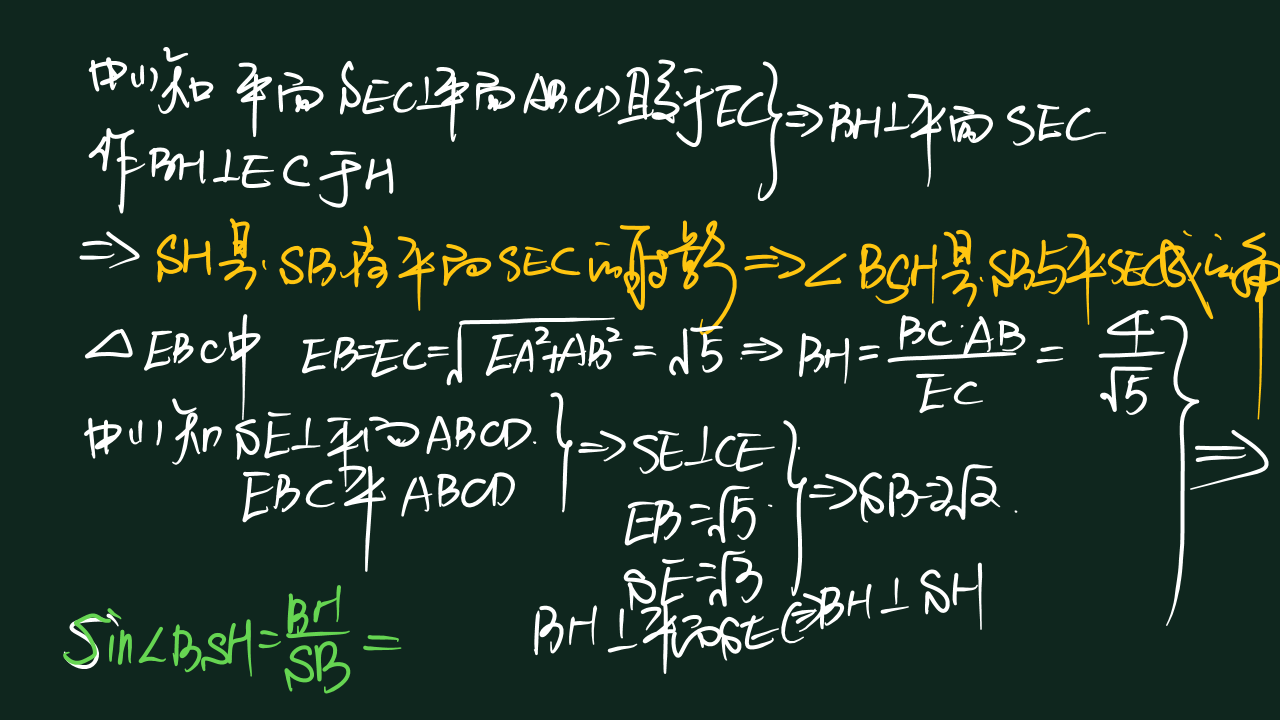 由(1)知 平面SEC⊥平面ABCD且交于EC } ⇒BH⊥平面SEC
作BH⊥EC于H
⇒ SH是SB在平面SEC的射影 ⇒ ∠BSH是SB与平SEC成的角
△EBC中 EB=EC=√(EA²+AB²) = √5 ⇒ BH = BC·AB/EC = 4/√5 } ⇒
由(1)知SE⊥平面ABCD. } ⇒ SE⊥CE } ⇒SB=2√2.
EBC平ABCD
EB=√5
SE=√3
BH⊥平面SEC⇒BH⊥SH
Sin∠BSH=BH/SB=